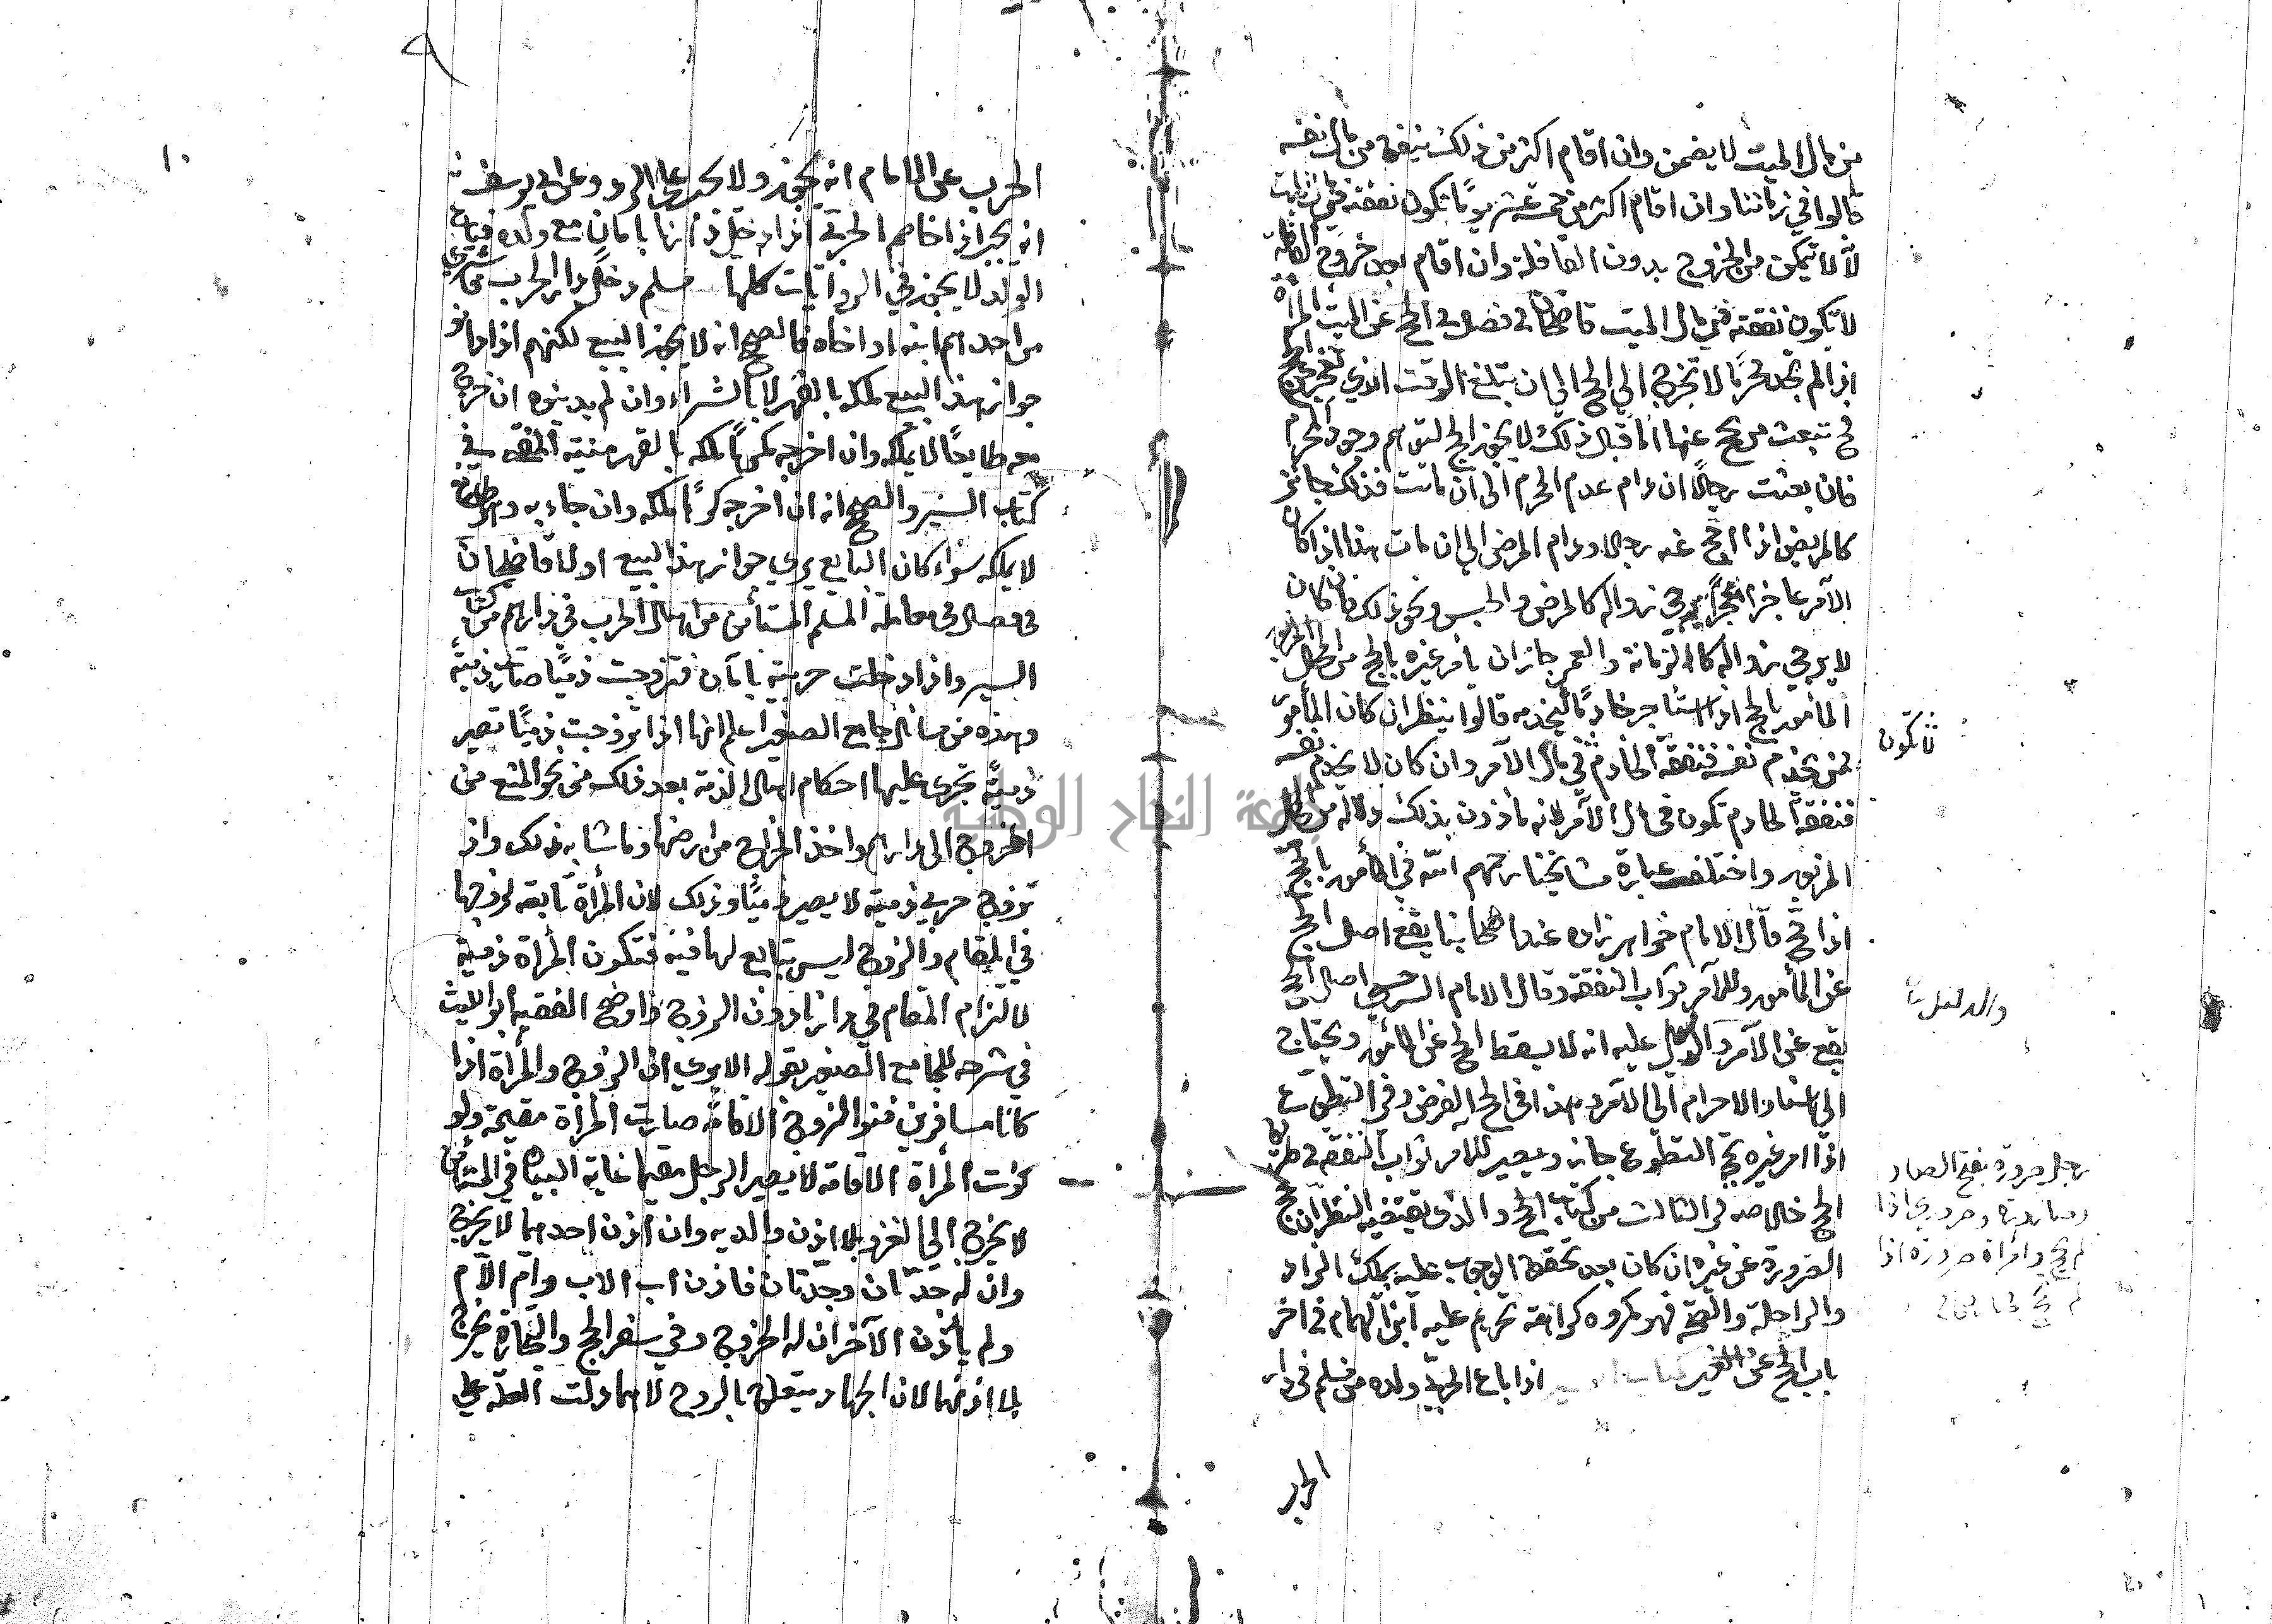 من مال الميت لا يضمن وان اقام اكثر من ذلك ينفق من مال نفسه
قالوا في زماننا وان اقام اكثر من خمسة عشر يوما تكون نفقته في مال الميت
لانه لا يتمكن من الخروج بدون القافلة وان اقام بعد خروج القافلة
لا تكون نفقته في مال الميت قاضيخان في فصل في الحج عن الميت المرأة
اذا لم تجد محرما لا تخرج الي الحج الي ان تبلغ الوقت الذي تعجز عن الحج
فح تبعث من يحج عنها اما قبل ذلك لا يجوز الحج لتوهم وجود المحرم
فان بعثت رجلا ان دام عدم المحرم الى ان ماتت فذلك جائز
كالمريض اذا احج عنه رجلا ودام المرض الي ان مات هذا اذا كان
الآمر عاجزا عجزا يرجى زواله كالمرض والحبس ونحو ذلك فان كان
لا يرجي زواله كالزمانة والعمي جاز ان يأمر غيره بالحج من المحل المزبور
المأمور بالحج اذا استأجر خادما ليخدمه قالوا ينظر ان كان المأمور
ممن يخدم نفسه فنفقة الخادم في مال الآمر وان كان لا يخدم نفسه
فنفقة الخادم تكون في مال الآمر لانه مأذون بذلك دلالة من المحل
المزبور واختلف عبارة مشايخنا رحمهم الله في المأمور بالحج
اذا حج قال الامام خواهر زاده عند اصحابنا يقع اصل الحج
عن المأمور وللآمر ثواب النفقة وقال الامام السرخسي اصل الحج
يقع عن الآمر والدليل عليه انه لا يسقط الحج عن المأمور ويحتاج
الى اسناد الاحرام الى الآمر وهذا في الحج الفرض وفي التطوع
اذا امر غيره بحج التطوع جاز ويصير للآمر ثواب النفقة في طريق
الحج خلاصه في الثالث من كتاب الحج والذي يقتضيه النظر ان حج
الصرورة عن غيره ان كان بعد تحقق الوجوب عليه بملك الزاد
والراحلة والصحة فهو مكروه كراهة تحريم عليه ابن الهمام في اخر
باب الحج عن الغير كتاب السير اذا باع الحربي ولده من مسلم في دار
الحرب
لا تكون
والدليل
رجل صرورة بفتح الصاد
وصارورة وصروري اذا
لم يحج وامرأة صرورة اذا
لم تحج
١٠
الحرب عن الامام انه يجوز ولا يجبر على الرد وعن ابي يوسف
انه يجبر اذا خاصم الحربي اذا دخل دارنا بامان مع ولده فباع
الولد لا يجوز في الروايات كلها مسلم دخل دار الحرب فاشترى
من احدهم ابنه او اخاه فالصحيح انه لا يجوز البيع لكنهم اذا دانو
جواز هذا البيع ملكه بالقهر لا بالشراء وان لم يدينوه ان خرج
معه طايعا لا يملكه وان اخرجه مكرها ملكه بالقهر منية المفتي في
كتاب السير والصحيح انه ان اخرجه كرها ملكه وان جاء به وهو طايع
لا يملكه سواء كان البايع يري جواز هذا البيع اولا قاضيخان
في فصل في معاملة المسلم المستأمن من اهل الحرب في دارهم من كتاب
السير واذا دخلت حربية بامان فتزوجت ذميا صارت ذمية
وهذه من مسائل جامع الصغير اعلم انها اذا تزوجت ذميا تصير
ذمية تجرى عليها احكام اهل الذمة بعد ذلك من نحو المنع من
الخروج الى دارهم واخذ الخراج من ارضها وما شابه ذلك واذا
تزوج حربي ذمية لا يصير ذميا وذلك لان المرأة تابعه لزوجها
في المقام والزوج ليس بتابع لها فيه فتكون المرأة ذمية
لالتزام المقام في دارنا دون الزوج واوضح الفقيه ابو الليث
في شرحه للجامع الصغير بقوله الا يرى ان الزوج والمرأة اذا
كانا مسافرين فنوا الزوج الاقامة صارت المرأة مقيمة ولو
نوت المرأة الاقامة لا يصير الرجل مقيما غاية البيان في المستأمن
لا يخرج الي الغزو بلا اذن والديه وان اذن احدهما لا يخرج
وان له جدان وجدتان فاذن اب الاب وام الام
ولم يأذن الآخران له الخروج وفي سفر الحج والتجارة يخرج
بلا اذنهما لان الجهاد متعلق بالروح لا هما دلت العلة علي